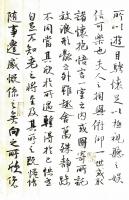 所以遊目騁懷足以極視聽之娛
信可樂也夫人之相與俯仰一世或取
諸懷抱悟言一室之內或因寄所託
放浪形骸之外雖趣舍萬殊靜躁
不同當其欣於所遇暫得於己快然
自足不知老之將至及其所之既惓情
隨事遷感慨係之矣向之所欣俛